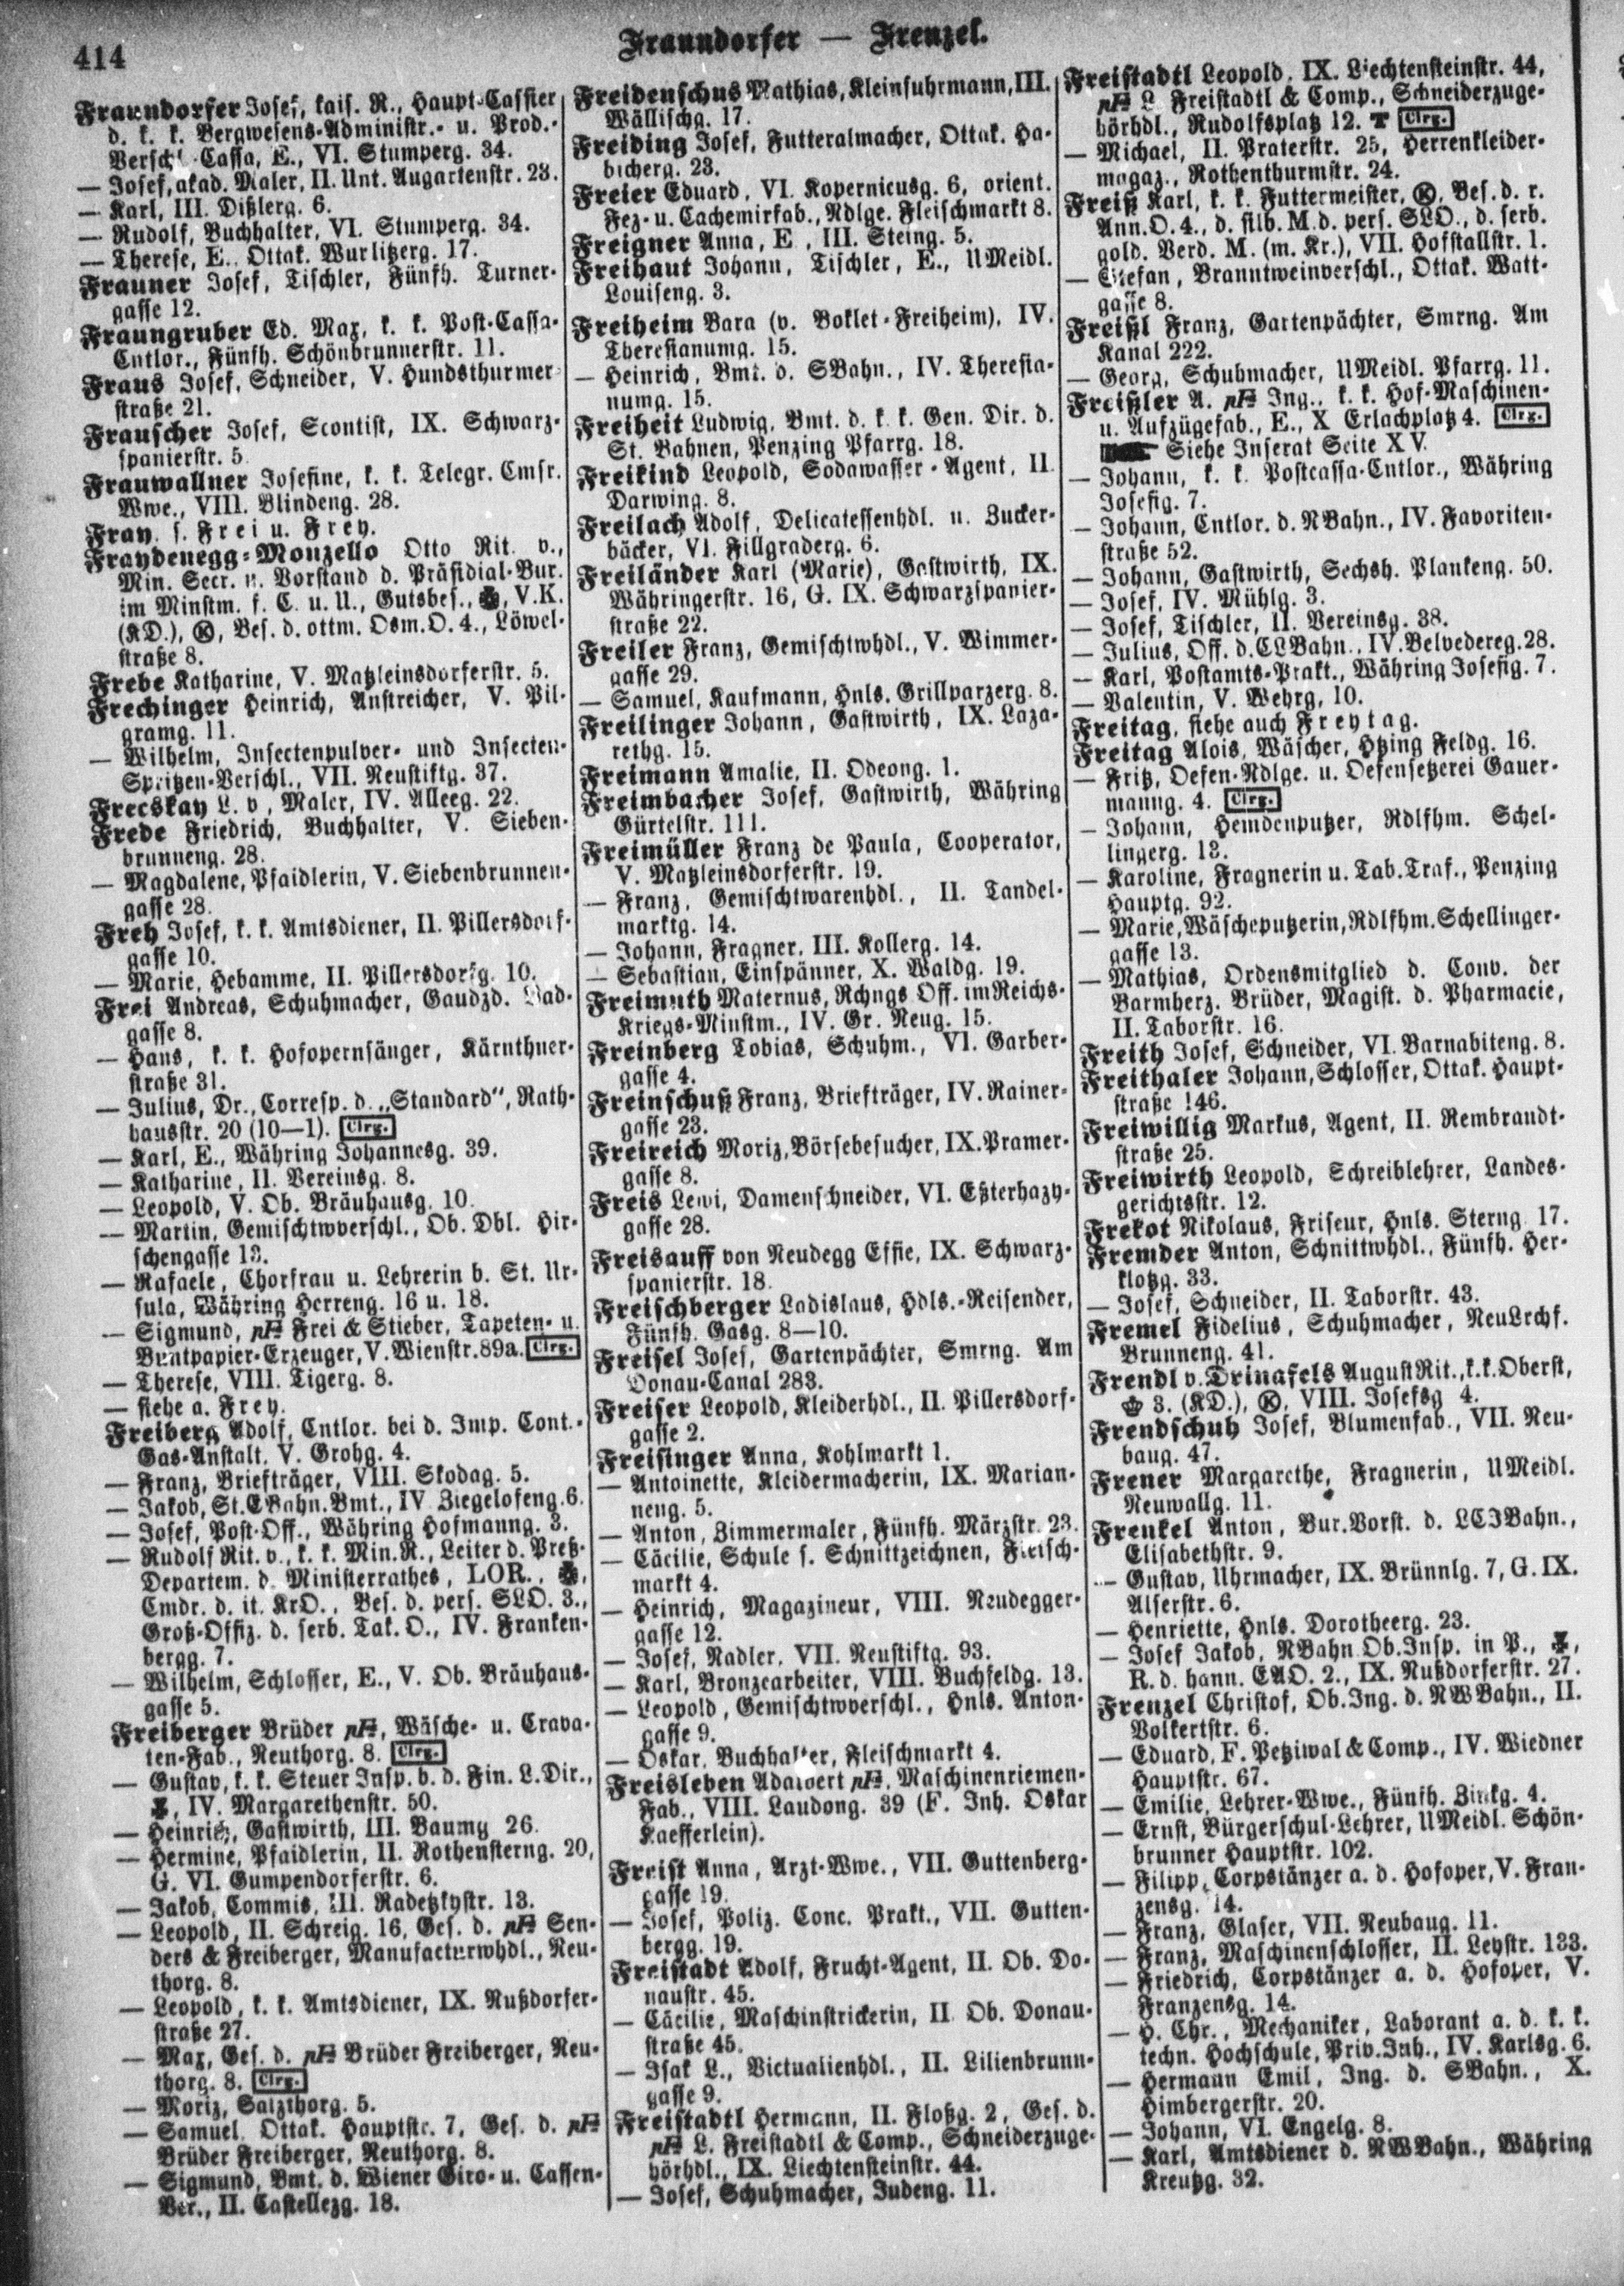 414
Fraundorfer — Frenzel.
Fraundorfer Josef, kais. R., Haupt-Cassier
d. k. k. Bergwesens-Administr.- u. Prod.-
Verschl. Cassa, E., VI. Stumperg. 34.
— Josef, akad. Maler, II. Unt. Augartenstr. 23.
— Karl, III. Dißlerg. 6.
— Rudolf, Buchhalter, VI. Stumperg. 34.
— Therese, E., Ottak. Wurlitzerg. 17.
Frauner Josef, Tischler, Fünfh. Turner-
gasse 12.
Fraungruber Ed. Max, k. k. Post-Cassa-
Cntlor., Fünfh. Schönbrunnerstr. 11.
Fraus Josef, Schneider, V. Hundsthurmer
straße 21.
Frauscher Josef, Scontist, IX. Schwarz-
spanierstr. 5.
Frauwallner Josefine, k. k. Telegr. Cmsr.
Wwe., VIII. Blindeng. 28.
Fray, s. Frei u. Frey.
Fraydenegg-Monzello Otto Rit. v.,
Min. Secr. u. Vorstand d. Präsidial-Bur.
im Minstm. f. C. u. U., Gutsbes., V. K.
(KD.), Ⓚ, Bes. d. ottm. Osm. O. 4., Löwel-
straße 8.
Frebe Katharine, V. Matzleinsdorferstr. 5.
Frechinger Heinrich, Anstreicher, V. Pil-
gramg. 11.
— Wilhelm, Insectenpulver- und Insecten-
Spritzen-Verschl., VII. Neustiftg. 37.
Frecskay L. v., Maler, IV. Alleeg. 22.
Frede Friedrich, Buchhalter, V. Sieben-
brunneng. 28.
— Magdalene, Pfaidlerin, V. Siebenbrunnen-
gasse 28.
Freh Josef, k. k. Amtsdiener, II. Pillersdorf-
gasse 10.
— Marie, Hebamme, II. Pillersdorfg. 10.
Frei Andreas, Schuhmacher, Gaudzd. Bad-
gasse 8.
— Hans, k. k. Hofopernsänger, Kärnthner-
straße 31.
— Julius, Dr., Corresp. d. „Standard", Rath-
hausstr. 20 (10—1). Clrg.
— Karl, E., Währing Johannesg. 39.
— Katharine, II. Vereinsg. 8.
— Leopold, V. Ob. Bräuhausg. 10.
— Martin, Gemischtwverschl., Ob. Dbl. Hir-
schengasse 13.
— Rafaele, Chorfrau u. Lehrerin b. St. Ur-
sula, Währing Herreng. 16 u. 18.
— Sigmund, Frei & Stieber, Tapeten- u.
Buntpapier-Erzeuger, V. Wienstr. 89a. Clrg.
— Therese, VIII. Tigerg. 8.
— siehe a. Frey.
Freiberg Adolf, Cntlor. bei d. Imp. Cont.-
Gas-Anstalt, V. Grohg. 4.
— Franz, Briefträger, VIII. Skodag. 5.
— Jakob, St. EBahn. Bmt., IV Ziegelofeng. 6.
— Josef, Post-Off., Währing Hofmanng. 3.
— Rudolf Rit. v., k. k. Min. R., Leiter d. Preß-
Departem. d. Ministerrathes, LOR.,
Cmdr. d. it. KrO., Bes. d. pers. SLO. 3.,
Groß-Offiz. d. serb. Tak. O., IV. Franken-
bergg. 7.
— Wilhelm, Schlosser, E., V. Ob. Bräuhaus-
gasse 5.
Freiberger Brüder, Wäsche- u. Crava-
ten-Fab., Neuthorg. 8. Clrg.
— Gustav, k. k. Steuer Insp. b. d. Fin. L. Dir.,
IV. Margarethenstr. 50.
— Heinrich, Gastwirth, III. Baumg 26.
— Hermine, Pfaidlerin, II. Rothensterng. 20,
G. VI. Gumpendorferstr. 6.
— Jakob, Commis, III. Radetzkystr. 13.
— Leopold, II. Schreig. 16, Ges. d. Sen-
ders & Freiberger, Manufacturwhdl., Neu-
thorg. 8.
— Leopold, k. k. Amtsdiener, IX. Nußdorfer-
straße 27.
— Max, Ges. d. Brüder Freiberger, Neu-
thorg. 8. Clrg.
— Moriz, Salzthorg. 5.
— Samuel, Ottak. Hauptstr. 7, Ges. d.
Brüder Freiberger, Neuthorg. 8.
— Sigmund, Bmt. d. Wiener Giro- u. Cassen-
Ver., II. Castellezg. 18.
Freidenschus Mathias, Kleinfuhrmann, III.
Wällischg. 17.
Freiding Josef, Futteralmacher, Ottak. Ha-
bicherg. 23.
Freier Eduard, VI. Kopernicusg. 6, orient.
Fez- u. Cachemirfab., Ndlge. Fleischmarkt 8.
Freigner Anna, E., III. Steing. 5.
Freihaut Johann, Tischler, E., UMeidl.
Louiseng. 3.
Freiheim Bara (v. Boklet-Freiheim), IV.
Theresianumg. 15.
— Heinrich, Bmt. d. SBahn., IV. Theresia-
numg. 15.
Freiheit Ludwig, Bmt. d. k. k. Gen. Dir. d.
St. Bahnen, Penzing Pfarrg. 18.
Freikind Leopold, Sodawasser-Agent, II.
Darwing. 8.
Freilach Adolf, Delicatessenhdl. u. Zucker-
bäcker, VI. Fillgraderg. 6.
Freiländer Karl (Marie), Gastwirth, IX.
Währingerstr. 16, G. IX. Schwarzspanier-
straße 22.
Freiler Franz, Gemischtwhdl., V. Wimmer-
gasse 29.
— Samuel, Kaufmann, Hnls. Grillparzerg. 8.
Freilinger Johann, Gastwirth, IX. Laza-
rethg. 15.
Freimann Amalie, II. Odeong. 1.
Freimbacher Josef, Gastwirth, Währing
Gürtelstr. 111.
Freimüller Franz de Paula, Cooperator,
V. Matzleinsdorferstr. 19.
— Franz, Gemischtwarenhdl., II. Tandel-
marktg. 14.
— Johann, Fragner, III. Kollerg. 14.
— Sebastian, Einspänner, X. Waldg. 19.
Freimuth Maternus, Rchngs Off. im Reichs-
Kriegs-Minstm., IV. Gr. Neug. 15.
Freinberg Tobias, Schuhm., VI. Garber-
gasse 4.
Freinschuß Franz, Briefträger, IV. Rainer-
gasse 23.
Freireich Moriz, Börsebesucher, IX. Pramer-
gasse 8.
Freis Lewi, Damenschneider, VI. Eßterhazy-
gasse 28.
Freisauff von Neudegg Effie, IX. Schwarz-
spanierstr. 18.
Freischberger Ladislaus, Hdls.-Reisender,
Fünfh. Gasg. 8—10.
Freisel Josef, Gartenpächter, Smrng. Am
Donau-Canal 283.
Freiser Leopold, Kleiderhdl., II. Pillersdorf-
gasse 2.
Freisinger Anna, Kohlmarkt 1.
— Antoinette, Kleidermacherin, IX. Marian-
neng. 5.
— Anton, Zimmermaler, Fünfh. Märzstr. 23.
— Cäcilie, Schule f. Schnittzeichnen, Fleisch-
markt 4.
— Heinrich, Magazineur, VIII. Neudegger-
gasse 12.
— Josef, Nadler, VII. Neustiftg. 93.
— Karl, Bronzearbeiter, VIII. Buchfeldg. 13.
— Leopold, Gemischtwverschl., Hnls. Anton-
gasse 9.
— Oskar, Buchhalter, Fleischmarkt 4.
Freisleben Adalbert, Maschinenriemen-
Fab., VIII. Laudong. 39 (F. Inh. Oskar
Kaefferlein).
Freist Anna, Arzt-Wwe., VII. Guttenberg-
gasse 19.
— Josef, Poliz. Conc. Prakt., VII. Gutten-
bergg. 19.
Freistadt Adolf, Frucht-Agent, II. Ob. Do-
naustr. 45.
— Cäcilie, Maschinstrickerin, II. Ob. Donau-
straße 45.
— Isak L., Victualienhdl., II. Lilienbrunn-
gasse 9.
Freistadtl Hermann, II. Floßg. 2, Ges. d.
L. Freistadtl & Comp., Schneiderzuge-
hörhdl., IX. Liechtensteinstr. 44.
— Josef, Schuhmacher, Judeng. 11.
Freistadtl Leopold, IX. Liechtensteinstr. 44,
L. Freistadtl & Comp., Schneiderzuge-
hörhdl., Rudolfsplatz 12. T Clrg.
— Michael, II. Praterstr. 25, Herrenkleider-
magaz., Rothenthurmstr. 24.
Freiß Karl, k. k. Futtermeister, Ⓚ, Bes. d. r.
Ann. O. 4., d. silb. M. d. pers. SLO., d. serb.
gold. Verd. M. (m. Kr.), VII. Hofstallstr. 1.
— Stefan, Branntweinverschl., Ottak. Watt-
gasse 8.
Freißl Franz, Gartenpächter, Smrng. Am
Kanal 222.
— Georg, Schuhmacher, UMeidl. Pfarrg. 11.
Freißler A. Ing., k. k. Hof-Maschinen-
u. Aufzügefab., E., X Erlachplatz 4. Clrg.
Siehe Inserat Seite XV.
— Johann, k. k. Postcassa-Cntlor., Währing
Josefig. 7.
— Johann, Cntlor. d. NBahn., IV. Favoriten-
straße 52.
— Johann, Gastwirth, Sechsh. Plankeng. 50.
— Josef, IV. Mühlg. 3.
— Josef, Tischler, II. Vereinsg. 38.
— Julius, Off. d. CLBahn., IV. Belvedereg. 28.
— Karl, Postamts-Prakt., Währing Josefig. 7.
— Valentin, V. Wehrg. 10.
Freitag, siehe auch Freytag.
Freitag Alois, Wäscher, Htzing Feldg. 16.
— Fritz, Oefen-Ndlge. u. Oefensetzerei Gauer-
manng. 4. Clrg.
— Johann, Hemdenputzer, Rdlfhm. Schel-
lingerg. 13.
— Karoline, Fragnerin u. Tab. Traf., Penzing
Hauptg. 92.
— Marie, Wäscheputzerin, Rdlfhm. Schellinger-
gasse 13.
— Mathias, Ordensmitglied d. Conv. der
Barmherz. Brüder, Magist. d. Pharmacie,
II. Taborstr. 16.
Freith Josef, Schneider, VI. Barnabiteng. 8.
Freithaler Johann, Schlosser, Ottak. Haupt-
straße 146.
Freiwillig Markus, Agent, II. Rembrandt-
straße 25.
Freiwirth Leopold, Schreiblehrer, Landes-
gerichtsstr. 12.
Frekot Nikolaus, Friseur, Hnls. Sterng. 17.
Fremder Anton, Schnittwhdl., Fünfh. Her-
klotzg. 33.
— Josef, Schneider, II. Taborstr. 43.
Fremel Fidelius, Schuhmacher, NeuLrchf.
Brunneng. 41.
Frendl v. Drinafels August Rit., k. k. Oberst,
3. (KD.), Ⓚ, VIII. Josefsg 4.
Frendschuh Josef, Blumenfab., VII. Neu-
baug. 47.
Frener Margarethe, Fragnerin, UMeidl.
Neuwallg. 11.
Frenkel Anton, Bur. Vorst. d. LCJBahn.,
Elisabethstr. 9.
— Gustav, Uhrmacher, IX. Brünnlg. 7, G. IX.
Alserstr. 6.
— Henriette, Hnls. Dorotheerg. 23.
— Josef Jakob, NBahn Ob. Insp. in P.,
R. d. hann. EAO. 2., IX. Nußdorferstr. 27.
Frenzel Christof, Ob. Ing. d. NWBahn., II.
Volkertstr. 6.
— Eduard, F. Petziwal & Comp., IV. Wiedner
Hauptstr. 67.
— Emilie, Lehrer-Wwe., Fünfh. Zinkg. 4.
— Ernst, Bürgerschul-Lehrer, UMeidl. Schön-
brunner Hauptstr. 102.
— Filipp, Corpstänzer a. d. Hofoper, V. Fran-
zensg. 14.
— Franz, Glaser, VII. Neubaug. 11.
— Franz, Maschinenschlosser, II. Leystr. 133.
— Friedrich, Corpstänzer a. d. Hofoper, V.
Franzensg. 14.
— H. Chr., Mechaniker, Laborant a. d. k. k.
techn. Hochschule, Priv. Inh., IV. Karlsg. 6.
— Hermann Emil, Ing. d. SBahn., X.
Himbergerstr. 20.
— Johann, VI. Engelg. 8.
— Karl, Amtsdiener d. NWBahn., Währing
Kreutzg. 32.